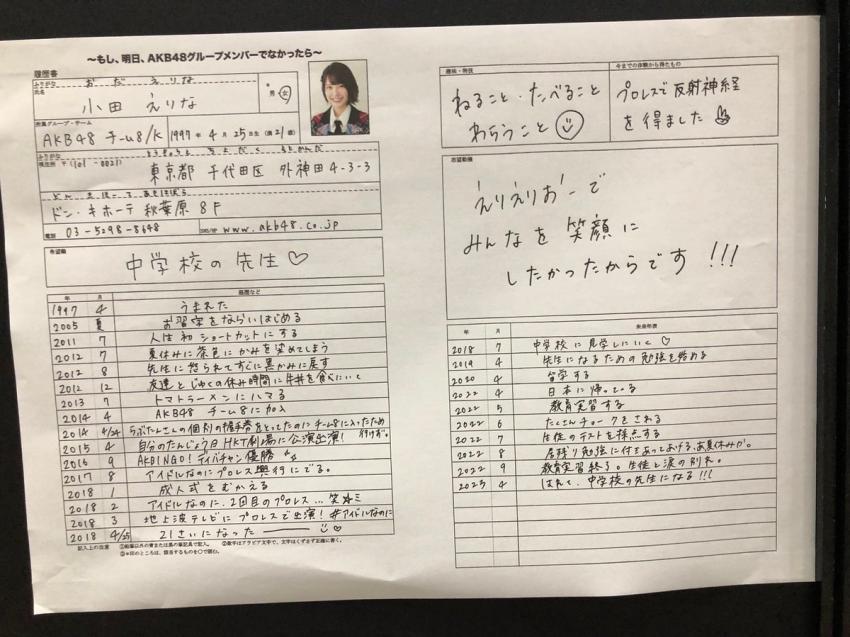 ～もし、明日、AKB48グループメンバーでなかったら～
履歴書
ふりがな おだ えりな
氏名 小田 えりな
※ 男 女
所属グループ・チーム
AKB48 チーム8/K 1997年 4月 25日生 (満21歳)
ふりがな とうきょうと ちよだく そとかんだ
現住所 〒(101-0021) 東京都 千代田区 外神田4-3-3
どん きほーて あきはばら
ドン・キホーテ 秋葉原 8F
電話 03-5298-8648 SNS/HP www.akb48.co.jp
希望職
中学校の先生♡
年 月 履歴など
1997 4 うまれた
2005 夏 お習字をならいはじめる
2011 7 人生初 ショートカットにする
2012 7 夏休みに茶色にかみを染めてしまう
2012 8 先生に怒られてすぐに黒かみに戻す
2012 12 友達とじゅくの休み時間に牛丼を食べにいく
2013 7 トマトラーメンにハマる
2014 4 AKB48 チーム8に加入
2014 4/24 らぶたんさんの個別の握手券をとってたのにチーム8に入ったため行けず。
2015 4 自分のたんじょう日HKT劇場に公演出演!
2016 9 AKBINGO!ディバチャン優勝
2017 8 アイドルなのにプロレス興行にでる。
2018 1 成人式をむかえる
2018 2 アイドルなのに、2回目のプロレス…笑
2018 3 地上波テレビにプロレスで出演!#アイドルなのに
2018 4/25 21さいになった ♡
記入上の注意 ①鉛筆以外の青または黒の筆記具で記入。 ②数字はアラビア文字で、文字はくずさず正確に書く。
③※印のところは、該当するものを○で囲む。
趣味・特技
ねること・たべること
わらうこと
今までの体験から得たもの
プロレスで反射神経
を得ました
志望動機
えりえりおーで
みんなを笑顔に
したかったからです!!!
年 月 未来年表
2018 7 中学校に見学しにいく♡
2019 4 先生になるための勉強を始める
2020 4 留学する
2022 4 日本に帰ってくる
2022 5 教育実習する
2022 6 たくさんチョークをきれる
2022 7 生徒のテストを採点する
2022 8 居残り勉強に付きあってあげる、あ、夏休みか。
2022 9 教育実習終了。生徒と涙の別れ。
2023 4 はれて、中学校の先生になる!!!